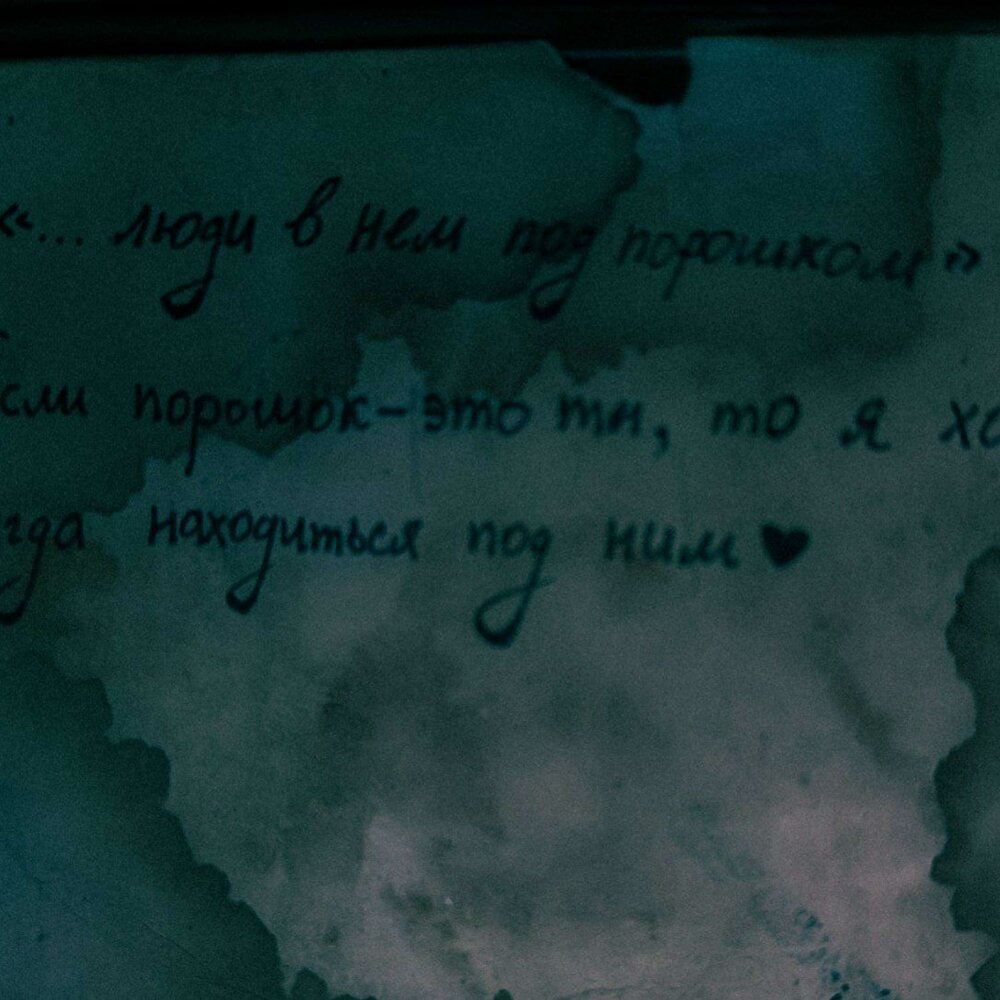 «... люди в нем под порошком»
сли порошок - это ты, то я хо
гда находиться под ним ♥